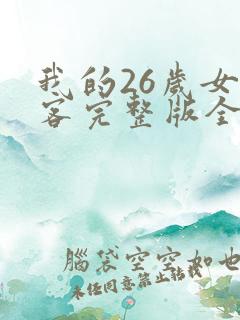 我的26歲女
客完整版全
腦袋空空如也
未任同意禁止轉載